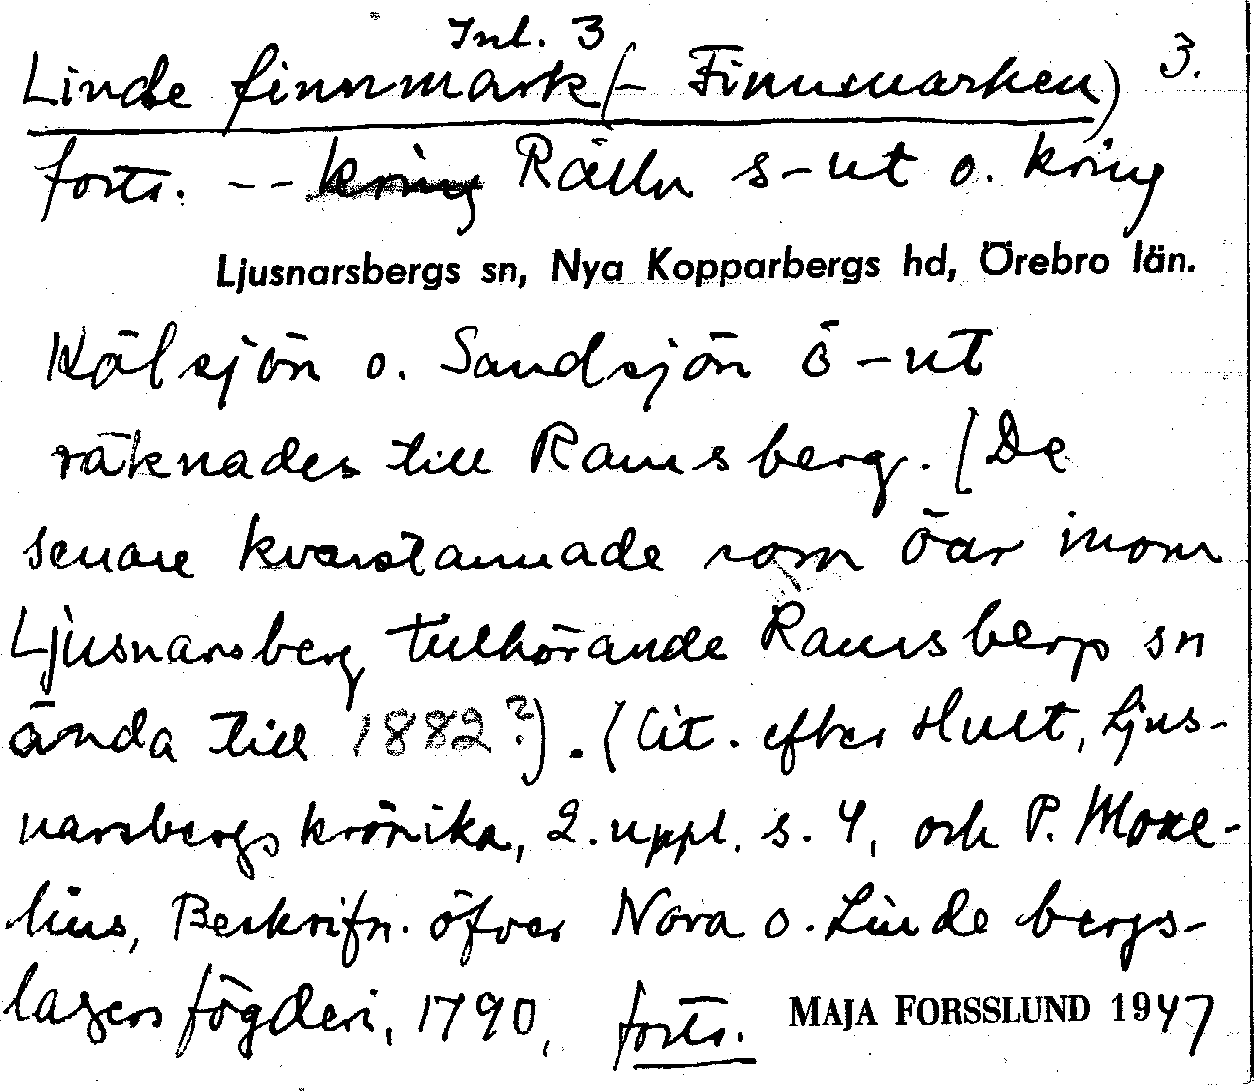 Inl. 3
Linde finnmark (- Finnmarken) 3.
forts. -- kring Rällu s-ut o. kring
Ljusnarsbergs sn, Nya Kopparbergs hd, Örebro län.
Kölsjön o. Sandsjön ö-ut
räknades till Ramsberg. (De
senare kvarstannade som öar inom
Ljusnarsberg tillhörande Ramsbergs sn
ända till 1882?). (Cit. efter Hult, Ljus-
narsbergs krönika, 2. uppl. s. 4, och P. Moxe-
lius, Beskrifn. öfver Nora o. Linde bergs-
lagers fögderi, 1790, forts. MAJA FORSSLUND 1947